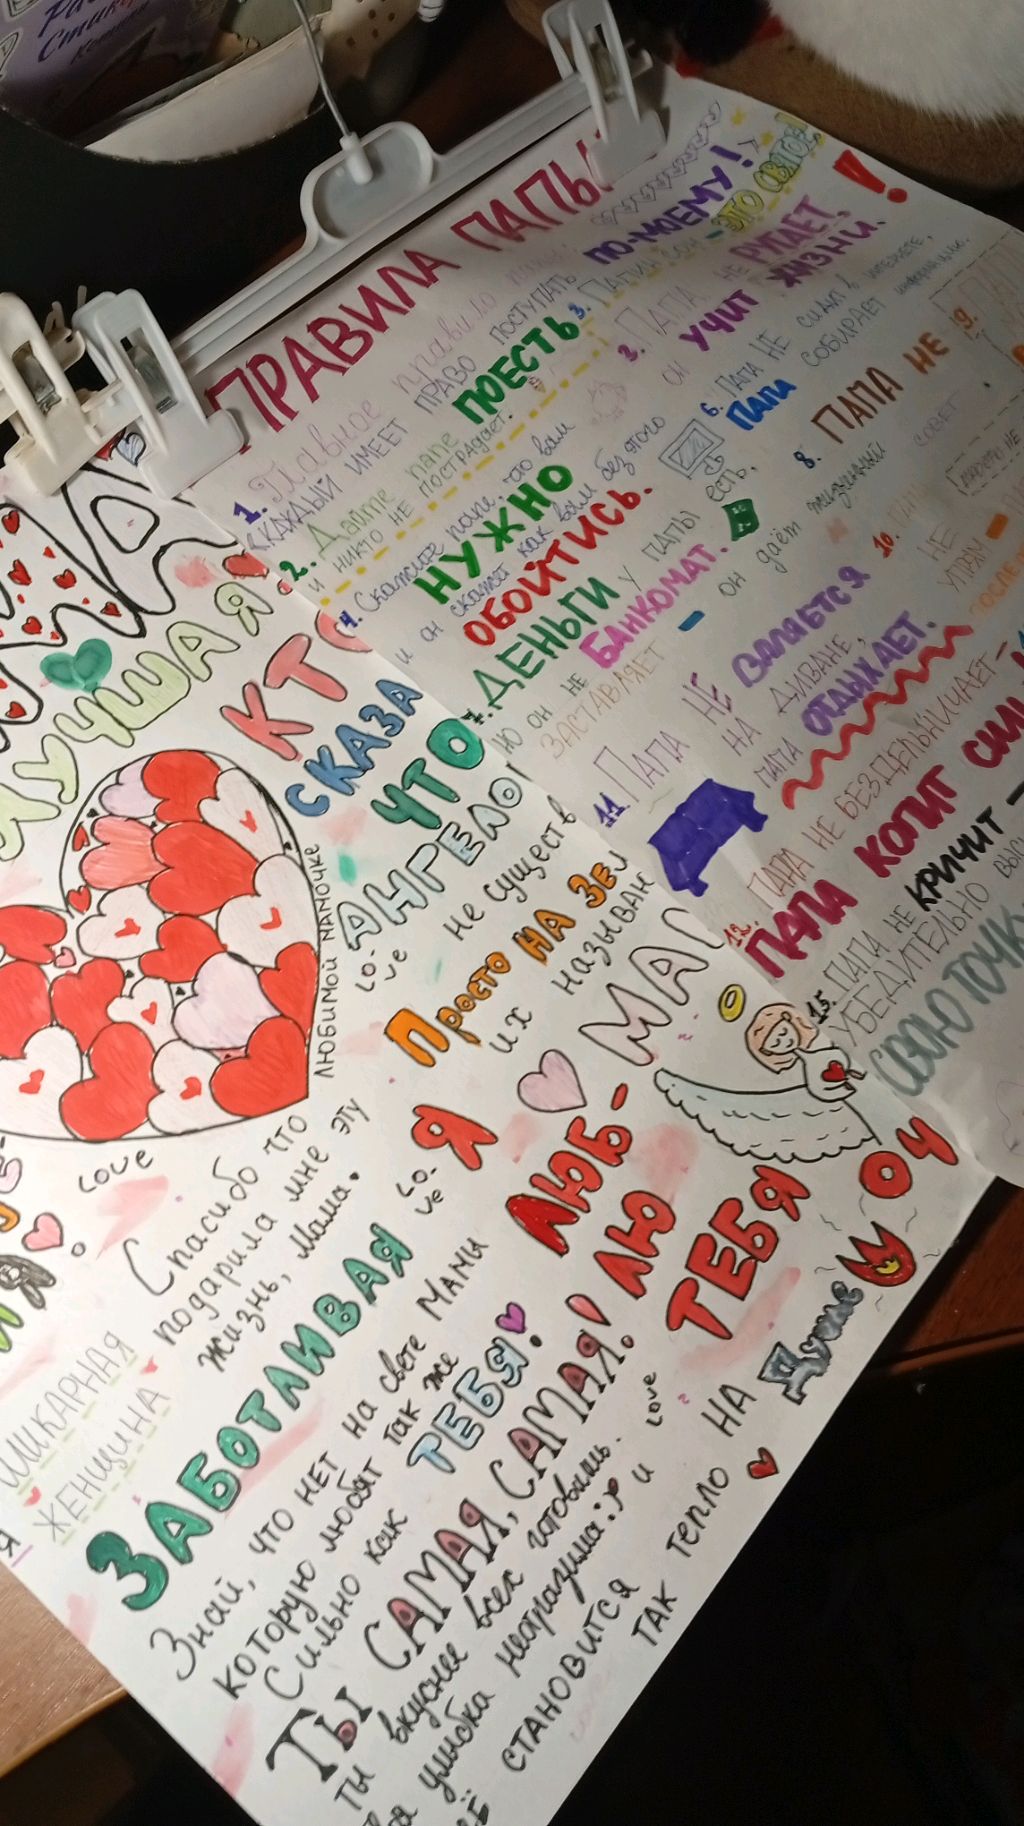 Стик
ПРАВИЛА ПАПЫ
1. Главное правило папы
"КАЖДЫЙ ИМЕЕТ ПРАВО ПОСТУПАТЬ ПО-МОЕМУ!
2. Дайте папе ПОЕСТЬ
и никто не пострадает.
3. ПАПИН СОН - ЭТО СВЯТОЕ!
4. Скажите папе, что вам НУЖНО
и он скажет как вам без этого ОБОЙТИСЬ.
ПАПА НЕ РУГАЕТ,
он УЧИТ ЖИЗНИ.
!
6. ПАПА НЕ СИДИТ в интернете,
ПАПА СОБИРАЕТ информацию.
7. ДЕНЬГИ у ПАПЫ есть,
НО ОН НЕ БАНКОМАТ.
8. ПАПА НЕ
ЗАСТАВЛЯЕТ - он даёт жизненный СОВЕТ
9.
10.
НЕ УПРЯМ -
11. ПАПА НЕ ВАЛЯЕТСЯ
НА ДИВАНЕ,
ПАПА ОТДЫХАЕТ.
12. ПАПА НЕ БЕЗДЕЛЬНИЧАЕТ -
ПАПА КОПИТ
15. ПАПА НЕ КРИЧИТ -
УБЕДИТЕЛЬНО
СВОЮ ТОЧК
ЛУЧШАЯ
КТО
СКАЗА
ЧТО
АНГЕЛО
не существ
ПРОСТО НА ЗЕМ
их называю
МА
ЛЮБИМОЙ МАМОЧКЕ
LO-
VE
LOVE
Спасибо что
подарила мне эту
жизнь, мама.
LO-
VE
Я
ЛЮБ-
ЛЮ
ТЕБЯ
ОЧ
ШИКАРНАЯ
ЖЕНЩИНА
Я
ЗАБОТЛИВАЯ
Знай, что НЕТ на свете Мамы
которую любят так же
Сильно как ТЕБЯ!
ТЫ САМАЯ, САМАЯ!
ты вкуснее всех готовишь.
улыбка неотразима :) и
LOVE
СТАНОВИТСЯ ТАК ТЕПЛО НА Душе